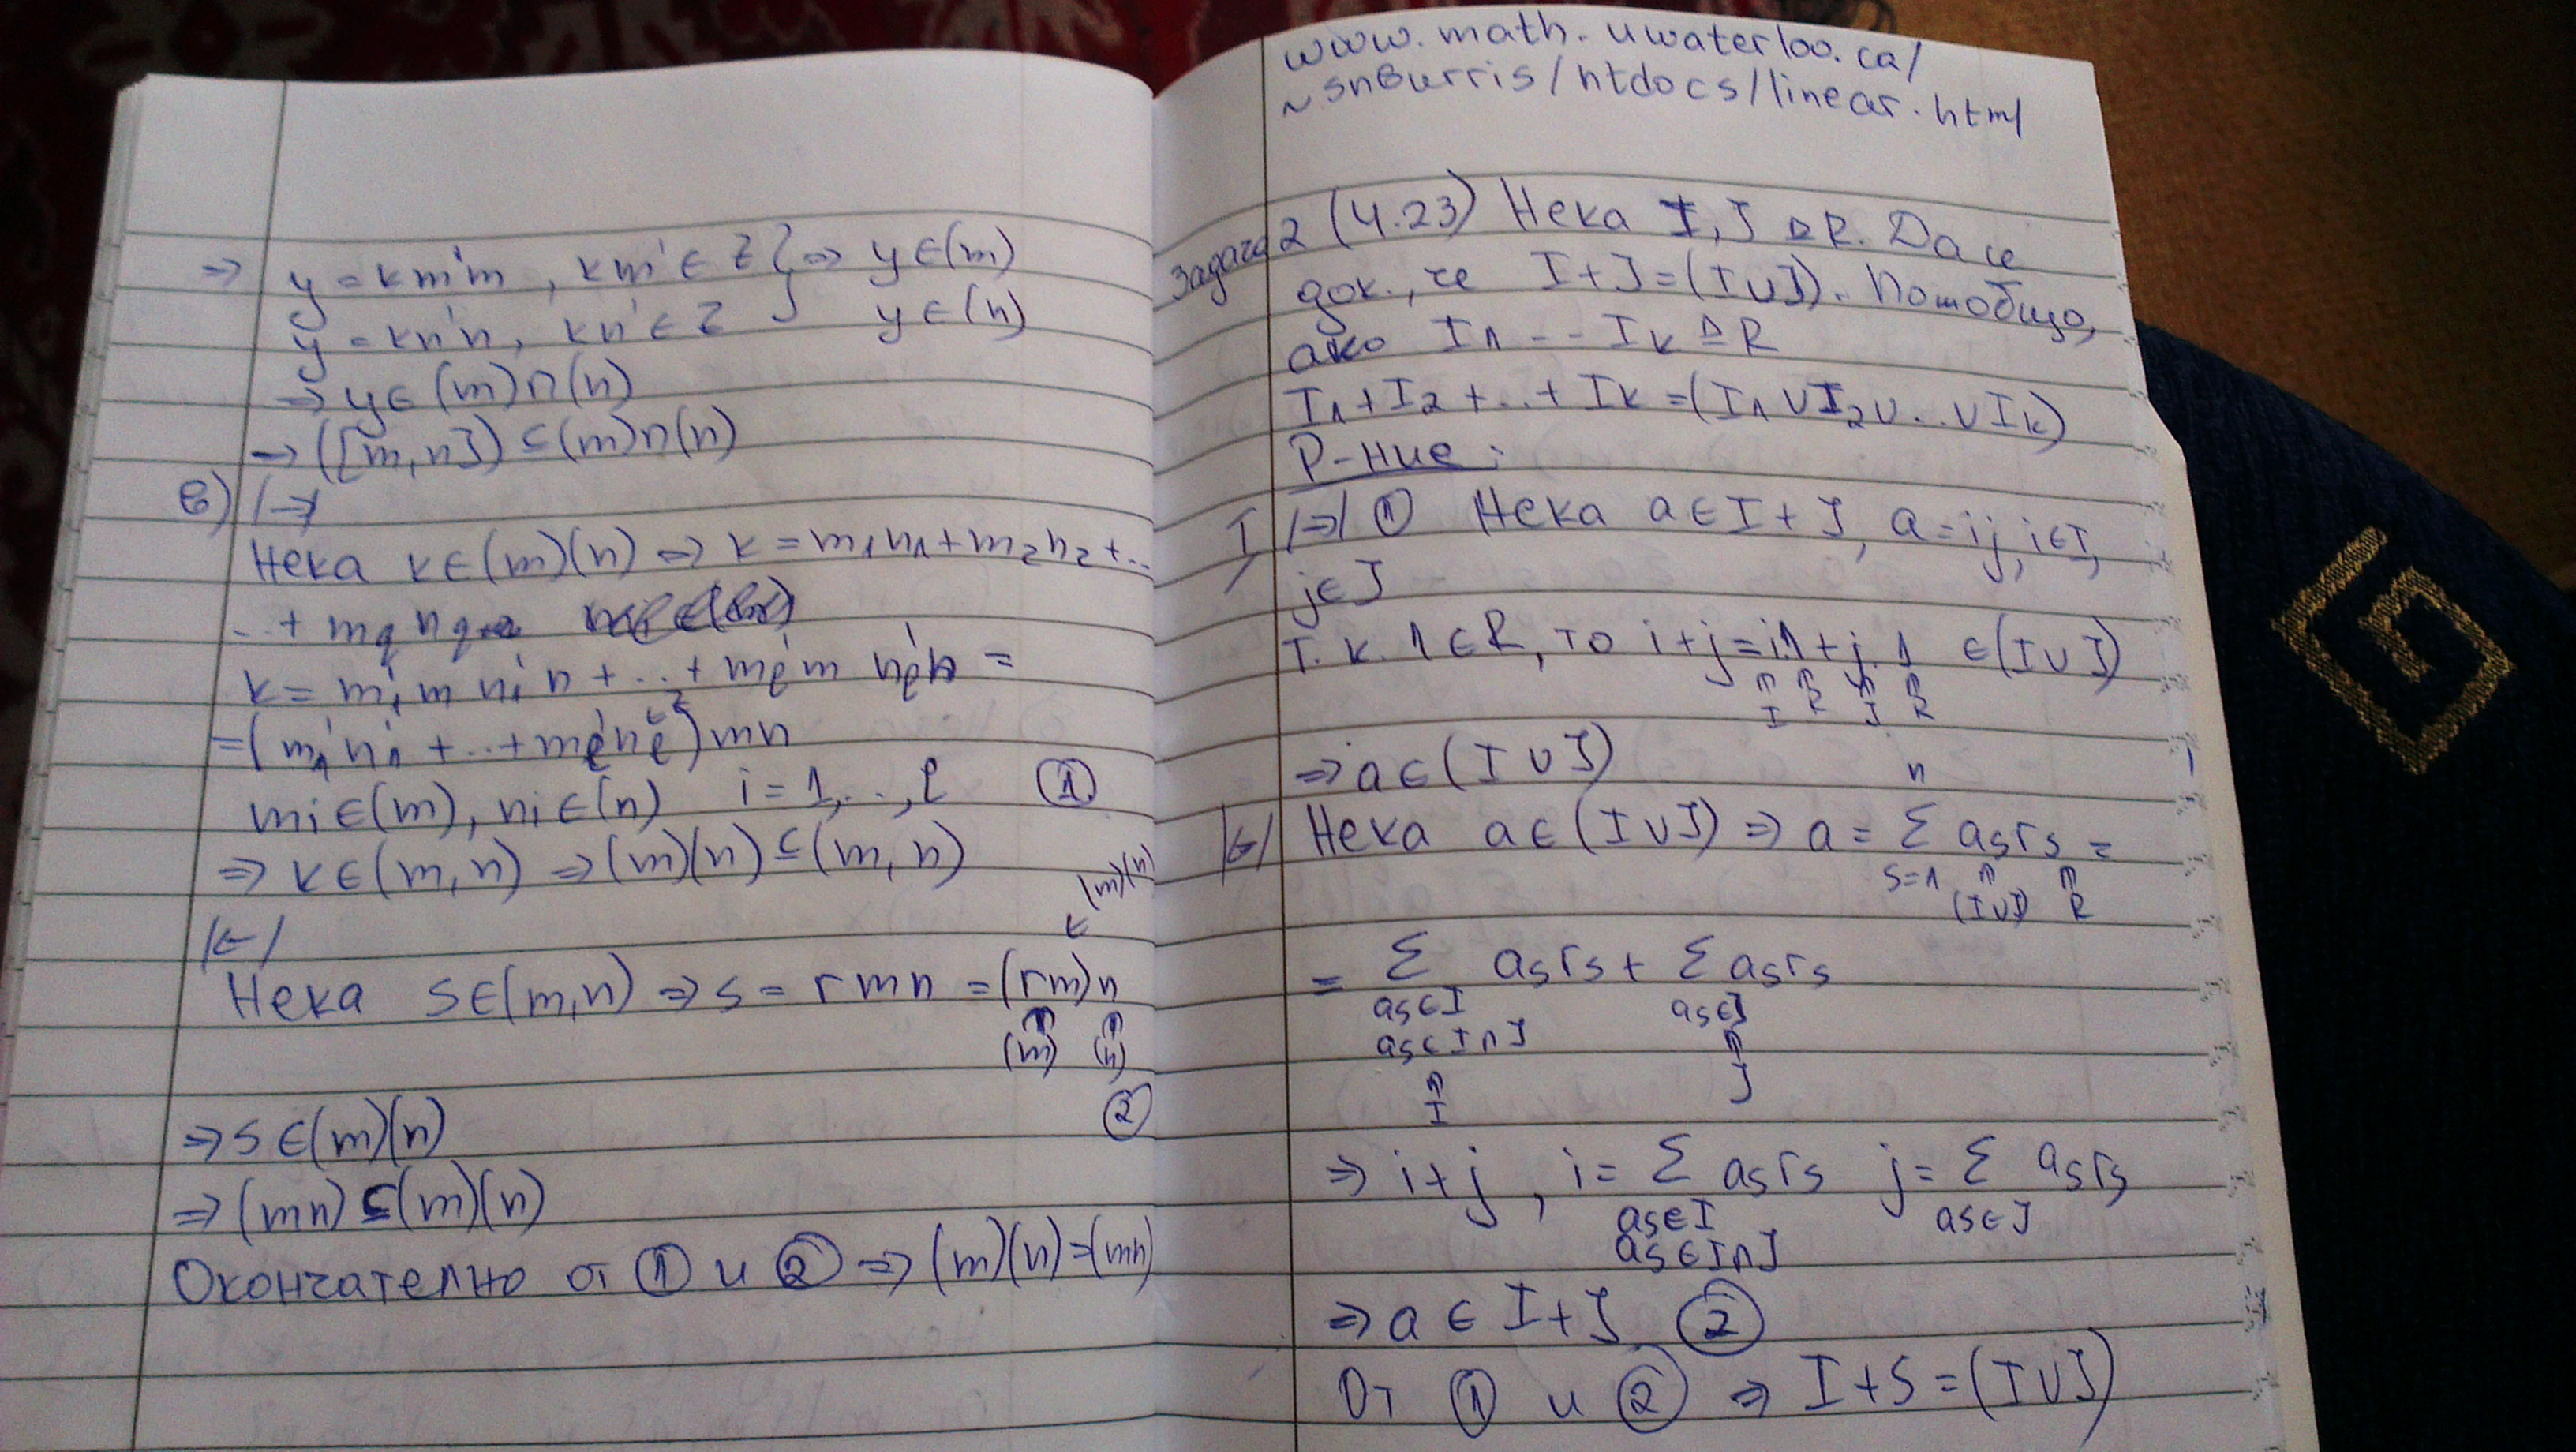 ⇒ y = km'm , km' ∈ Z } ⇒ y ∈ (m)
y = kn'n , kn' ∈ Z y ∈ (n)
⇒ y ∈ (m)∩(n)
→ ([m,n]) ⊆ (m)∩(n)
в) /→/
Нека k∈(m)(n) ⇒ k = m₁n₁+m₂n₂+..
..+ m_q n_q
k = m₁'m n₁'n + ..+ m_ℓ'm n_ℓ'n =
=(m₁'n₁' + ..+m_ℓ'n_ℓ')mn
mi∈(m), ni∈(n) i=1,..,ℓ ①
⇒ k∈(m,n) ⇒(m)(n)⊆(m,n)
/←/
∈ (m)(n)
Нека s∈(m,n) ⇒ s = rmn =(rm)n
(m) (n)
②
⇒ s∈(m)(n)
⇒ (mn)⊆(m)(n)
Окончателно от ① и ② ⇒ (m)(n)=(mn)
www.math.uwaterloo.ca/
~snburris/htdocs/linear.html
Задача 2 (4.23) Нека I, J ⊵ R. Да се
док., че I+J=(I∪J). Поmобщо,
ако I₁ -- I_k ⊵ R
I₁+I₂+..+I_k=(I₁∪I₂∪..∪I_k)
Р-ние:
I, /⇒/ ① Нека a∈I+J, a=ij, i∈I,
j∈J
Т.к. 1∈R, то i+j=i.1+j.1 ∈(I∪J)
I R J R
⇒ a∈(I∪J)
/←/ Нека a∈(I∪J) ⇒ a = Σ a_s r_s =
n
s=1 (I∪J) R
= Σ a_s r_s + Σ a_s r_s
a_s∈I a_s∈J
a_s∈I∩J
I J
⇒ i+j , i = Σ a_s r_s j= Σ a_s r_s
a_s∈I a_s∈J
a_s∈I∩J
⇒ a ∈ I+J ②
От ① и ② ⇒ I+S=(I∪J)